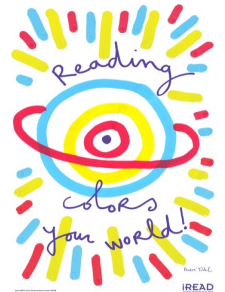 Reading
colors
your world!
iREAD